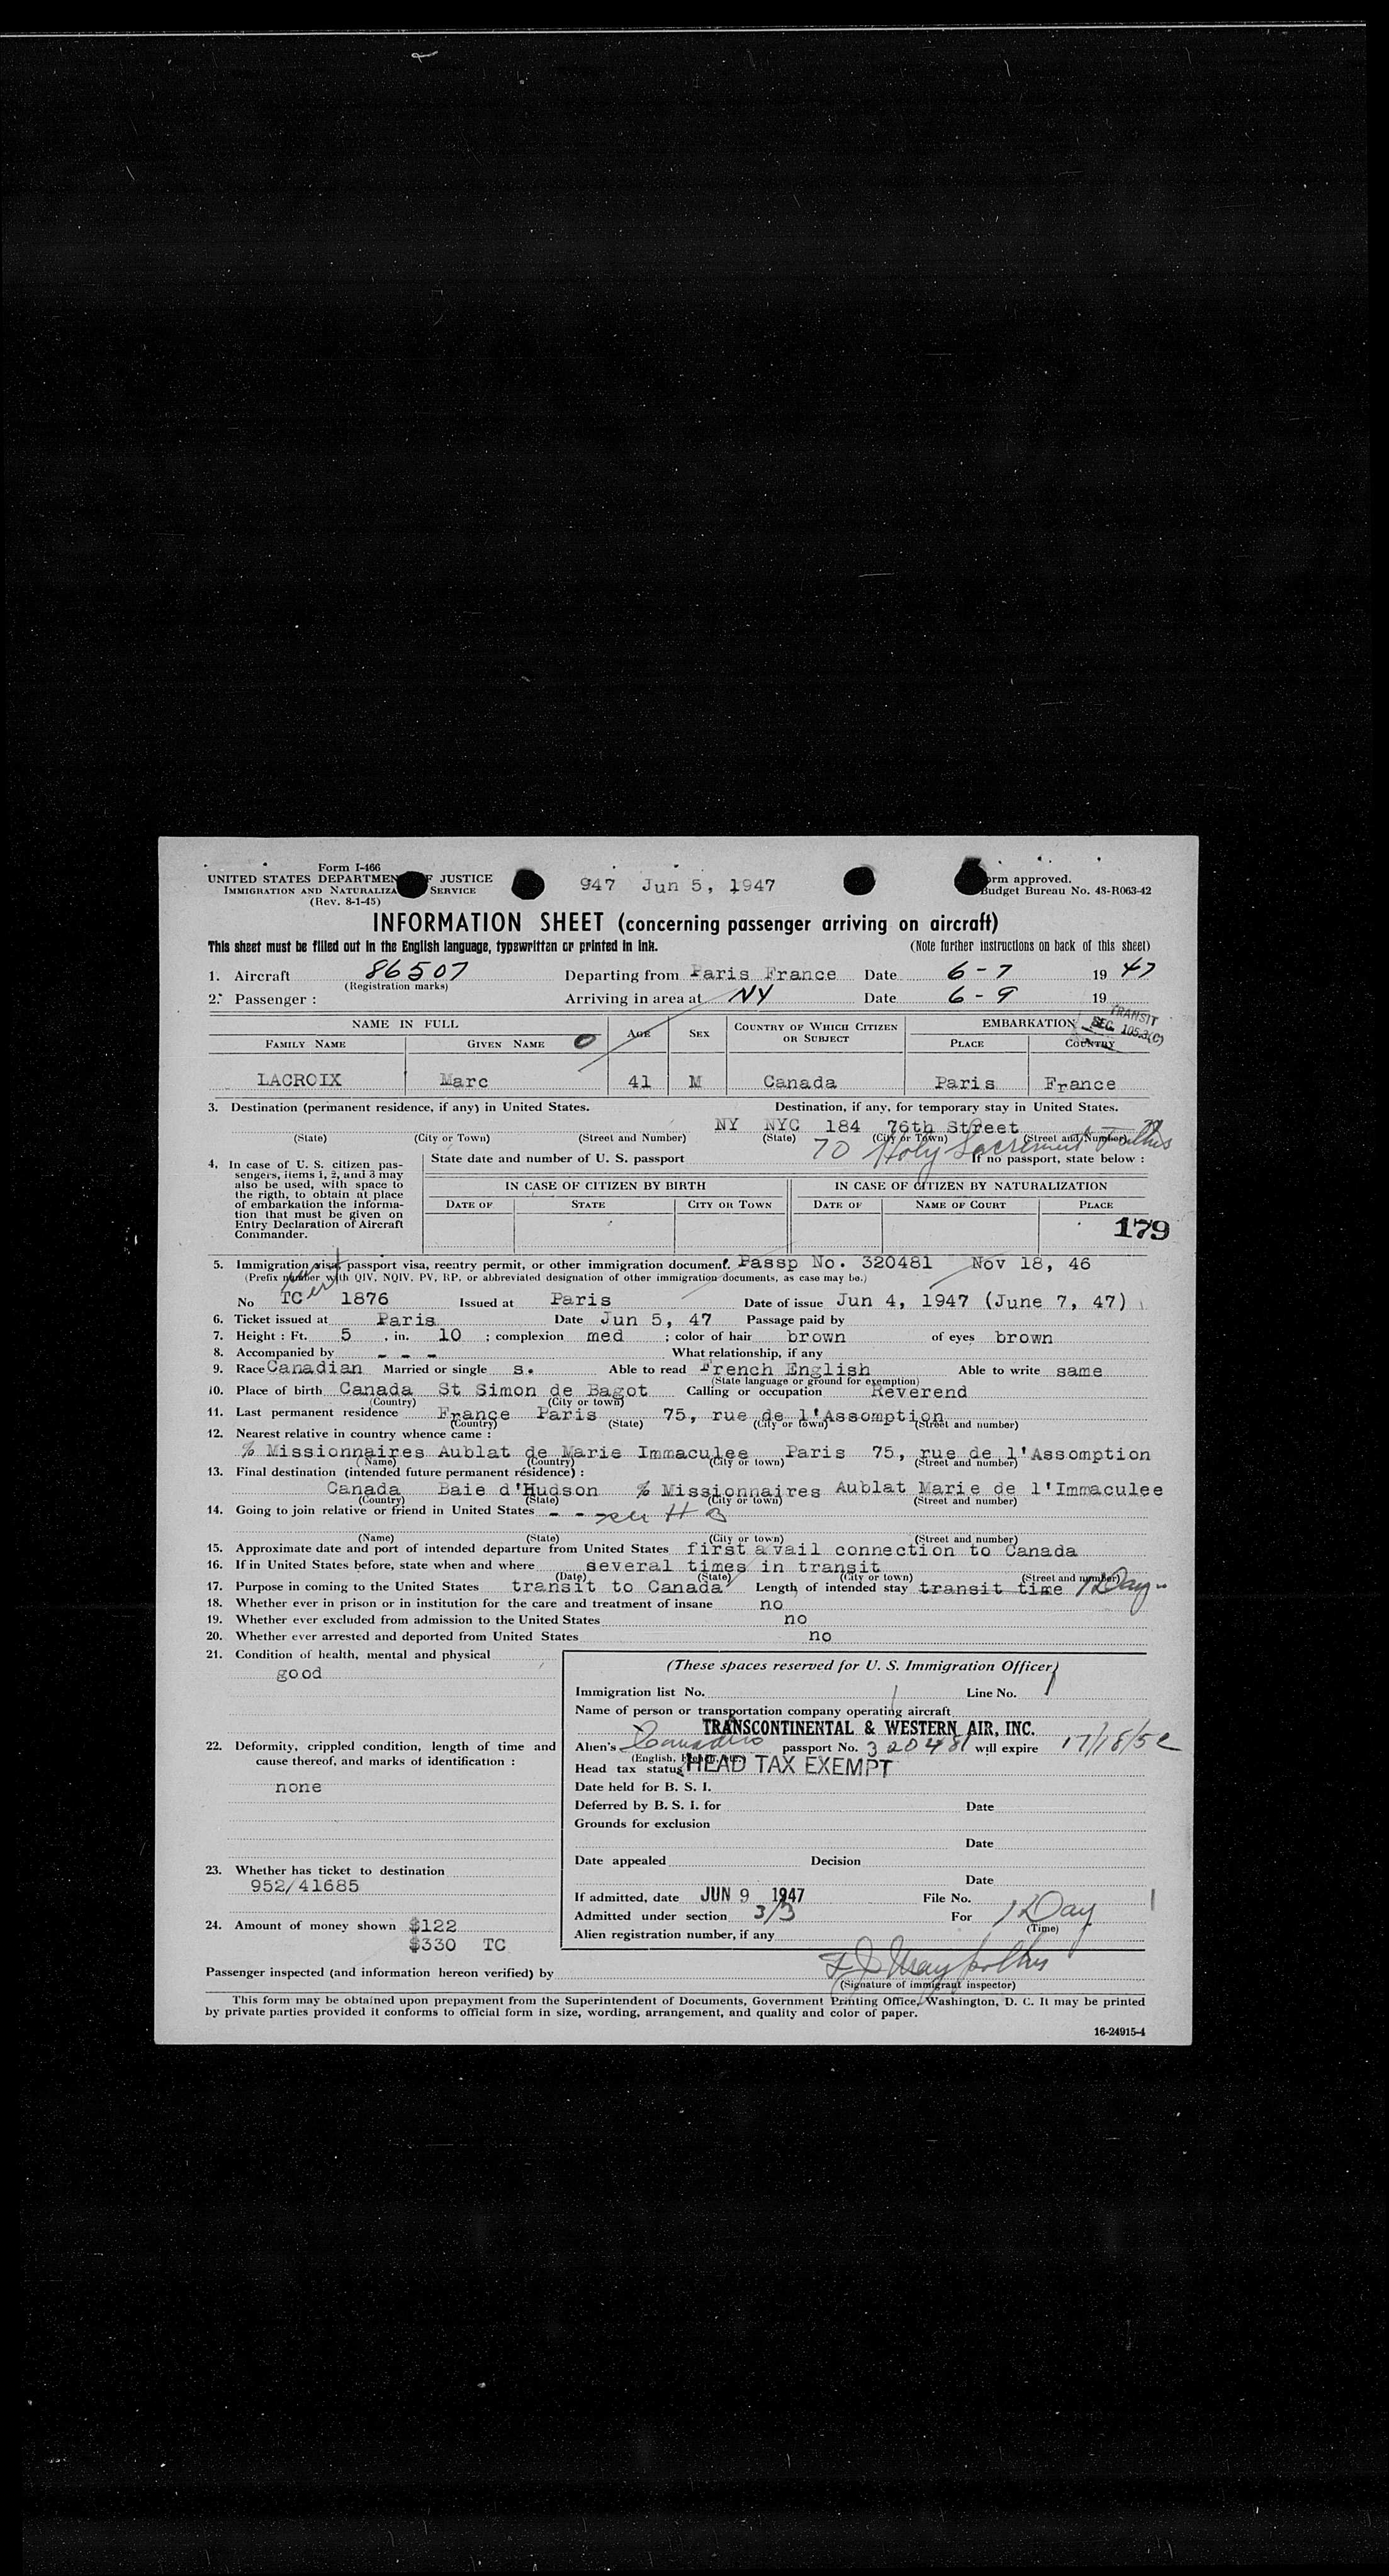 Form I-466
UNITED STATES DEPARTMEN F JUSTICE
IMMIGRATION AND NATURALIZA SERVICE
(Rev. 8-1-45)
947 Jun 5, 1947
orm approved.
Budget Bureau No. 43-R063-42
INFORMATION SHEET (concerning passenger arriving on aircraft)
This sheet must be filled out in the English language, typewritten or printed in ink. (Note further instructions on back of this sheet)
1. Aircraft 86507 Departing from Paris France Date 6-7 1947
(Registration marks)
2. Passenger : Arriving in area at NY Date 6-9 19
TRANSIT
SEC. 105.3(C)
NAME IN FULL AGE SEX COUNTRY OF WHICH CITIZEN OR SUBJECT EMBARKATION
FAMILY NAME GIVEN NAME O PLACE COUNTRY
LACROIX Marc 41 M Canada Paris France
3. Destination (permanent residence, if any) in United States. Destination, if any, for temporary stay in United States.
NY NYC 184 76th Street
(State) (City or Town) (Street and Number) (State) (City or Town) (Street and Number)
70 Holy Sacrement
4. In case of U. S. citizen pas-
sengers, items 1, 2, and 3 may
also be used, with space to
the rigth, to obtain at place
of embarkation the informa-
tion that must be given on
Entry Declaration of Aircraft
Commander.
State date and number of U. S. passport If no passport, state below :
IN CASE OF CITIZEN BY BIRTH IN CASE OF CITIZEN BY NATURALIZATION
DATE OF STATE CITY OR TOWN DATE OF NAME OF COURT PLACE
179
5. Immigration visa, passport visa, reentry permit, or other immigration document. Passp No. 320481 Nov 18, 46
(Prefix number with QIV, NQIV, PV, RP, or abbreviated designation of other immigration documents, as case may be.)
No TC 1876 Issued at Paris Date of issue Jun 4, 1947 (June 7, 47)
6. Ticket issued at Paris Date Jun 5, 47 Passage paid by
7. Height : Ft. 5 , in. 10 ; complexion med ; color of hair brown of eyes brown
8. Accompanied by - - - What relationship, if any
9. Race Canadian Married or single s. Able to read French English Able to write same
(State language or ground for exemption)
10. Place of birth Canada St Simon de Bagot Calling or occupation Reverend
(Country) (City or town)
11. Last permanent residence France Paris 75, rue de l'Assomption
(Country) (State) (City or town) (Street and number)
12. Nearest relative in country whence came :
% Missionnaires Aublat de Marie Immaculee Paris 75, rue de l'Assomption
(Name) (Country) (City or town) (Street and number)
13. Final destination (intended future permanent résidence) :
Canada Baie d'Hudson % Missionnaires Aublat Marie de l'Immaculee
(Country) (State) (City or town) (Street and number)
14. Going to join relative or friend in United States - - -
(Name) (State) (City or town) (Street and number)
15. Approximate date and port of intended departure from United States first avail connection to Canada
16. If in United States before, state when and where several times in transit
(Date) (State) (City or town) (Street and number)
17. Purpose in coming to the United States transit to Canada Length of intended stay transit time 1 Day
18. Whether ever in prison or in institution for the care and treatment of insane no
19. Whether ever excluded from admission to the United States no
20. Whether ever arrested and deported from United States no
21. Condition of health, mental and physical
good
22. Deformity, crippled condition, length of time and
cause thereof, and marks of identification :
none
23. Whether has ticket to destination
952/41685
24. Amount of money shown $122
$330 TC
(These spaces reserved for U. S. Immigration Officer)
Immigration list No. Line No. 1
Name of person or transportation company operating aircraft
TRANSCONTINENTAL & WESTERN AIR, INC.
Alien's passport No. 320481 will expire
(English, French, etc.)
Head tax status HEAD TAX EXEMPT
Date held for B. S. I.
Deferred by B. S. I. for Date
Grounds for exclusion
Date
Date appealed Decision
Date
If admitted, date JUN 9 1947 File No.
Admitted under section 3/3 For 1 Day
(Time)
Alien registration number, if any
Passenger inspected (and information hereon verified) by
(Signature of immigrant inspector)
This form may be obtained upon prepayment from the Superintendent of Documents, Government Printing Office, Washington, D. C. It may be printed
by private parties provided it conforms to official form in size, wording, arrangement, and quality and color of paper.
16-24915-4